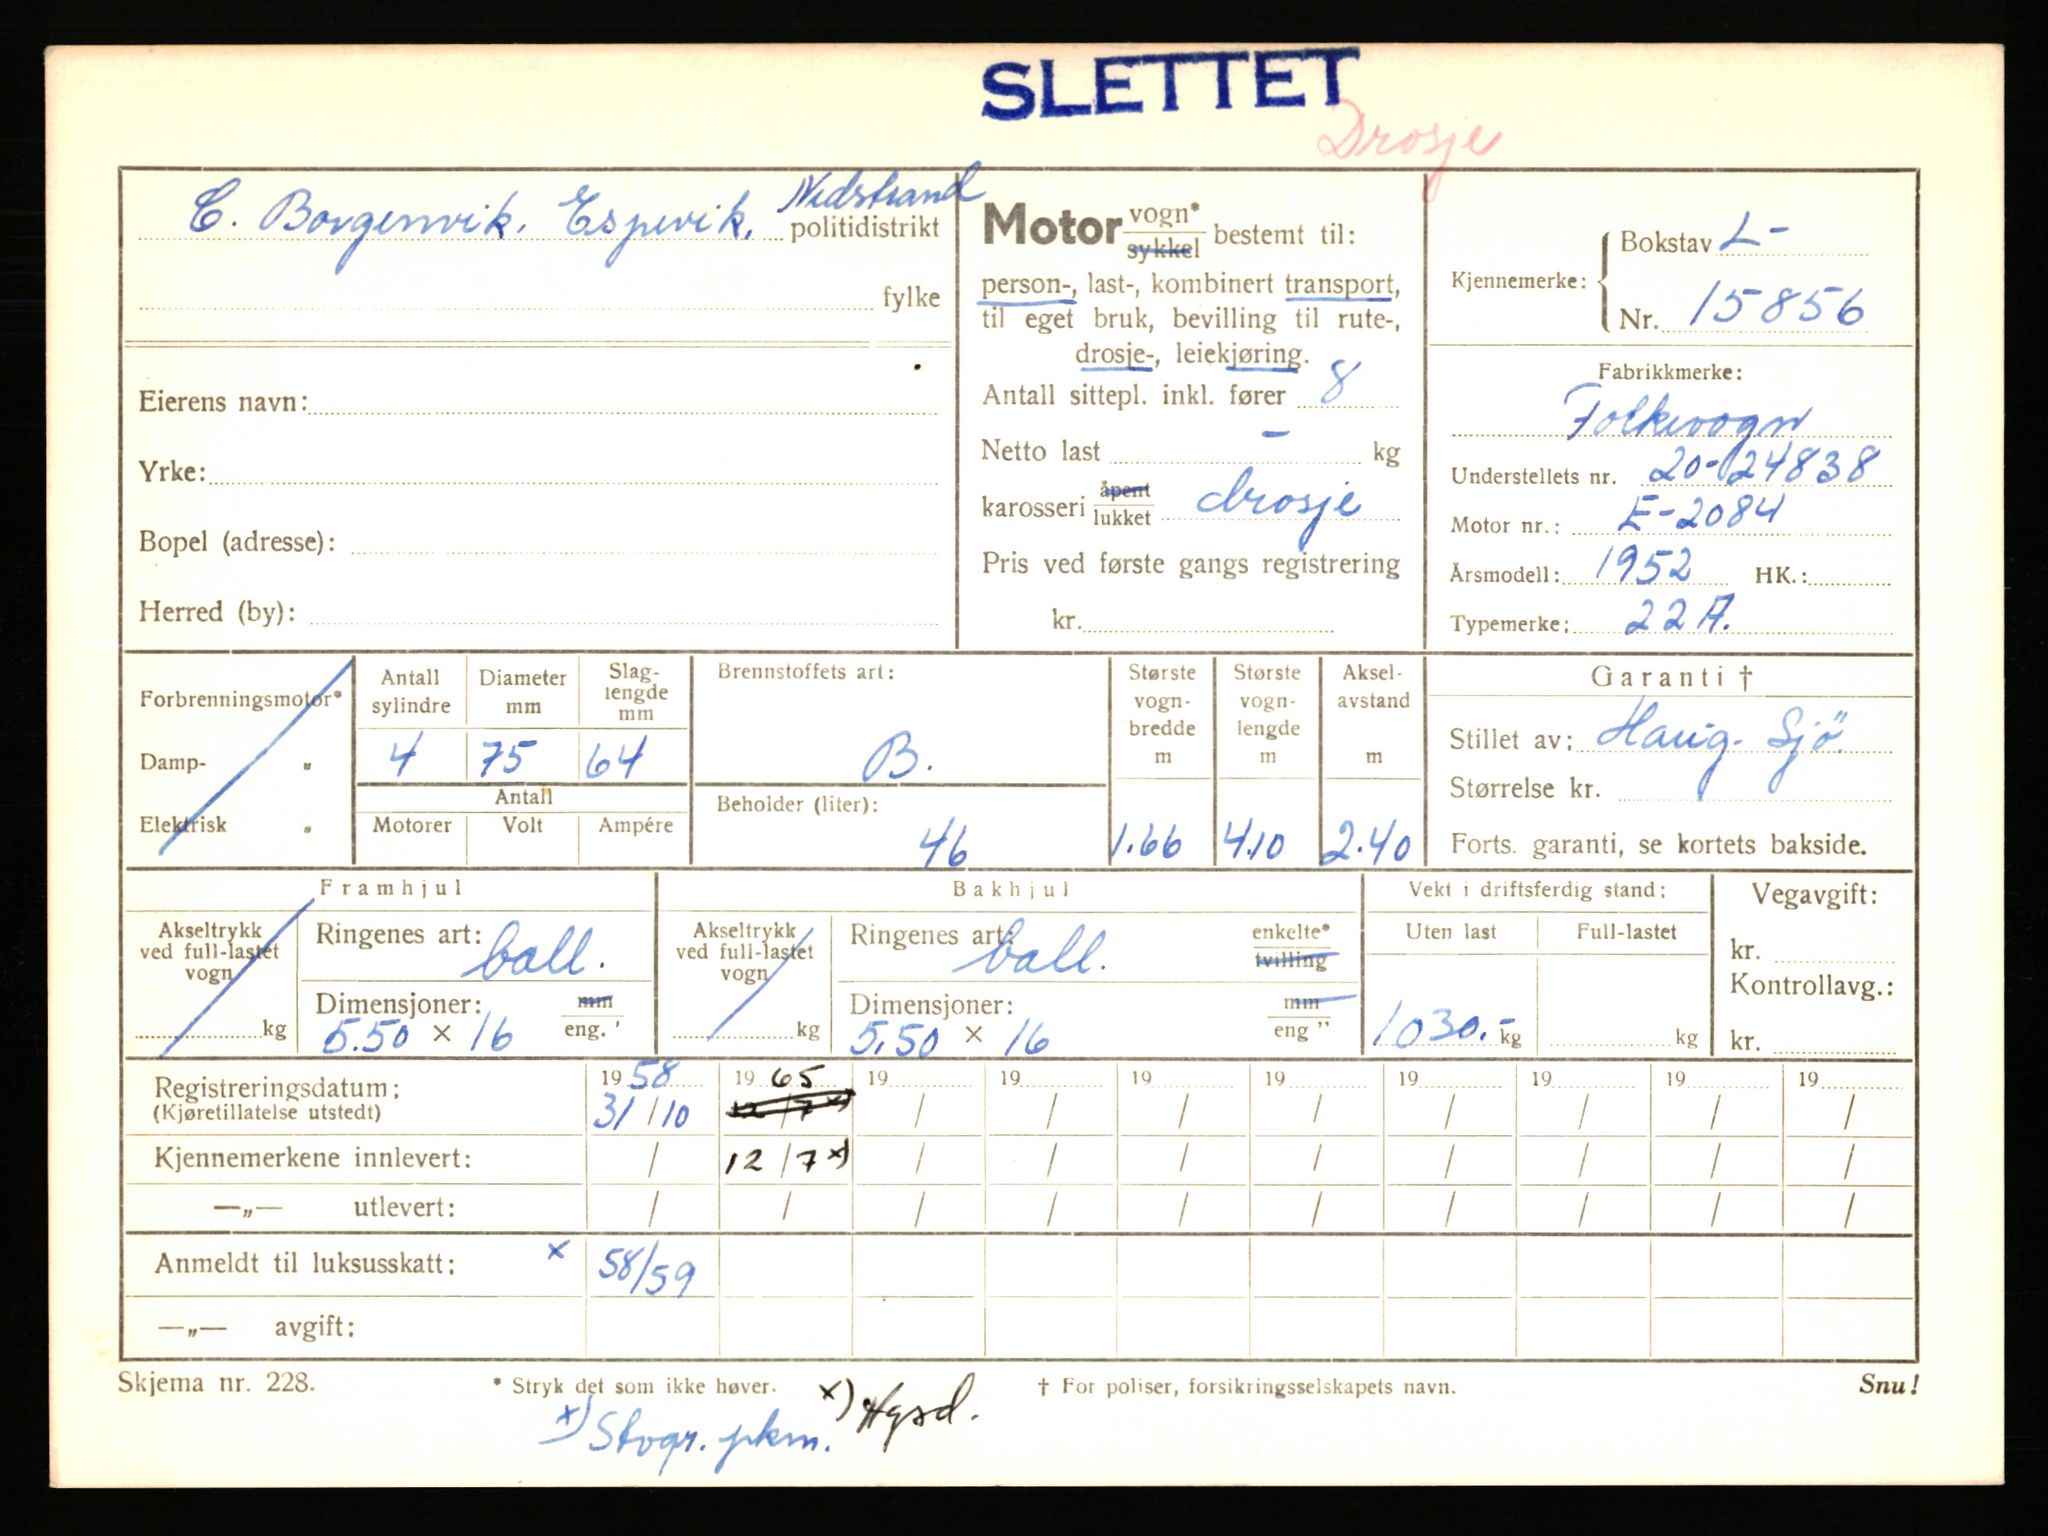 SLETTET
Drosje
C. Borgenvik. Espevik. Nedstrand politidistrikt
fylke
Eierens navn:
Yrke:
Bopel (adresse):
Herred (by):
Motor vogn* sykkel bestemt til:
person-, last-, kombinert transport,
til eget bruk, bevilling til rute-,
drosje-, leiekjøring.
Antall sittepl. inkl. fører 8
Netto last – kg
karosseri åpent lukket drosje
Pris ved første gangs registrering
kr.
Kjennemerke: Bokstav L-
Nr. 15856
Fabrikkmerke:
Folkevogn
Understellets nr. 20-124838
Motor nr.: E-2084
Årsmodell: 1952 HK.:
Typemerke: 22A.
Forbrenningsmotor*
Damp- „
Elektrisk „
Antall sylindre
Diameter mm
Slag-lengde mm
4 75 64
Antall
Motorer Volt Ampére
Brennstoffets art:
B.
Beholder (liter):
46
Største vogn-bredde m
1.66
Største vogn-lengde m
4.10
Aksel-avstand m
2.40
Garanti †
Stillet av: Haug. Sjö.
Størrelse kr.
Forts. garanti, se kortets bakside.
Framhjul
Akseltrykk ved full-lastet vogn
kg
Ringenes art: ball.
Dimensjoner: mm eng. '
5.50 × 16
Bakhjul
Akseltrykk ved full-lastet vogn
kg
Ringenes art: ball. enkelte* tvilling
Dimensjoner: mm eng "
5.50 × 16
Vekt i driftsferdig stand:
Uten last Full-lastet
1030.- kg kg
Vegavgift:
kr.
Kontrollavg.:
kr.
Registreringsdatum: 19 58 19 65 19 19 19 19 19 19 19 19
(Kjøretillatelse utstedt) 31/10 12/7 x) / / / / / / / /
Kjennemerkene innlevert: / 12/7 x) / / / / / / / /
—„— utlevert: / / / / / / / / / /
Anmeldt til luksusskatt: x 58/59
—„— avgift:
Skjema nr. 228. * Stryk det som ikke høver. † For poliser, forsikringsselskapets navn. Snu!
x) Stvgr. pkm. x) Hgsd.